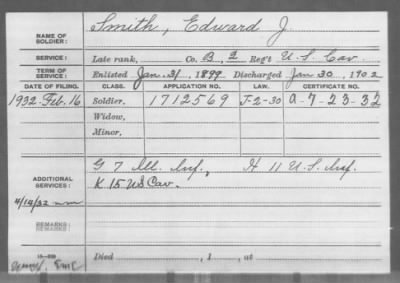 NAME OF SOLDIER: Smith, Edward J.
SERVICE: Late rank, Co. B, 2 Reg't U.S. Cav.
TERM OF SERVICE: Enlisted Jan. 31, 1899. Discharged Jan 30, 1902
DATE OF FILING. CLASS. APPLICATION NO. LAW. CERTIFICATE NO.
1932 Feb. 16 Soldier. 1712569 J-2-30 A-7-23-32
Widow,
Minor,
G 7 Ill. Inf., H 11 U.S. Inf.
ADDITIONAL SERVICES: K 15 US Cav.
4/14/32
REMARKS:
REMARKS:
Died , 1 , at